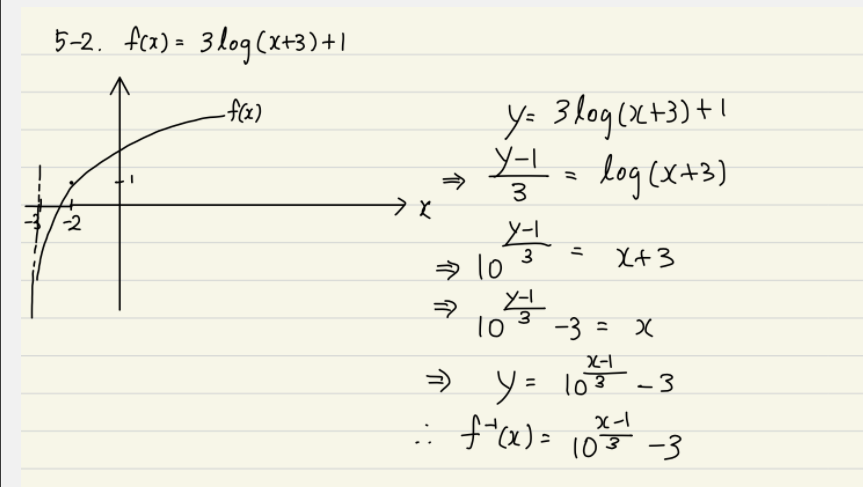 5-2. f(x) = 3log(x+3)+1
f(x)
1
-3 -2
x
y = 3log(x+3)+1
⇒ (y-1)/3 = log(x+3)
⇒ 10^((y-1)/3) = x+3
⇒ 10^((y-1)/3) -3 = x
⇒ y = 10^((x-1)/3) -3
∴ f⁻¹(x) = 10^((x-1)/3) -3